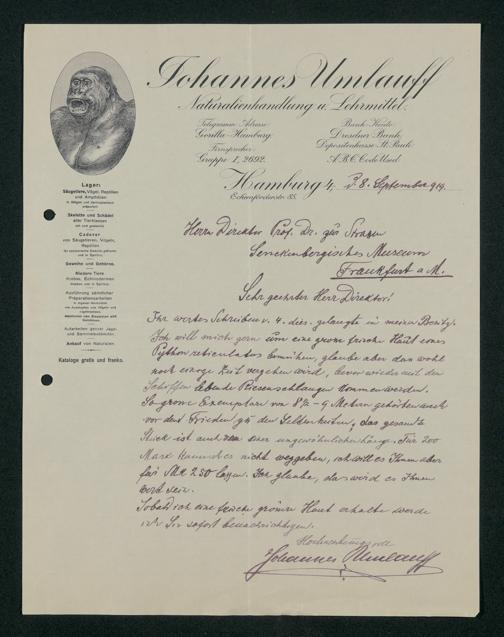 Johannes Umlauff
Naturalienhandlung u. Lehrmittel.
Telegramm-Adresse
Gorilla-Hamburg.
Fernsprecher
Gruppe 1, 2692.
Bank-Konto
Dresdner Bank,
Depositenkasse St. Pauli
A.B.C. Code Used
Hamburg 4, d. 8. September 919.
Lager:
Säugetiere, Vögel, Reptilien
und Amphibien
Skelette und Schädel
aller Tierklassen
Cadaver
von Säugetieren, Vögeln,
Reptilien
Geweihe und Gehörne.
Niedere Tiere
Krebse, Echinodermen
Ausführung sämtlicher
Präparationsarbeiten
Aufarbeiten ganzer Jagd-
und Sammelausbeuten.
Ankauf von Naturalien.
Kataloge gratis und franko.
Herrn Direktor Prof. Dr. zur Strassen
Senckenbergisches Museum
Frankfurt a M.
Sehr geehrter Herr Direktor!
Ihr wertes Schreiben v. 4. dies. gelangte in meinen Besitz.
Ich will mich gern um eine grosse frische Haut eines
Python reticulatus bemühen, glaube aber das wohl
noch einige Zeit vergehen wird, bevor wieder mit den
Schiffen lebende Riesenschlangen kommen werden.
So grosse Exemplare von 8½ - 9 Metern gehörten auch
vor dem Frieden zu den Seltenheiten, das gesamte
Stück ist auch von einer ungewöhnlichen Länge. Für 200
Mark kann ich es nicht weggeben, ich will es Ihnen aber
für Mk 250 lassen. Ich glaube, das wird es Ihnen
wert sein.
Sobald ich eine frische grosse Haut erhalte werde
ich Sie sofort benachrichtigen.
Hochachtungsvoll
Johannes Umlauff